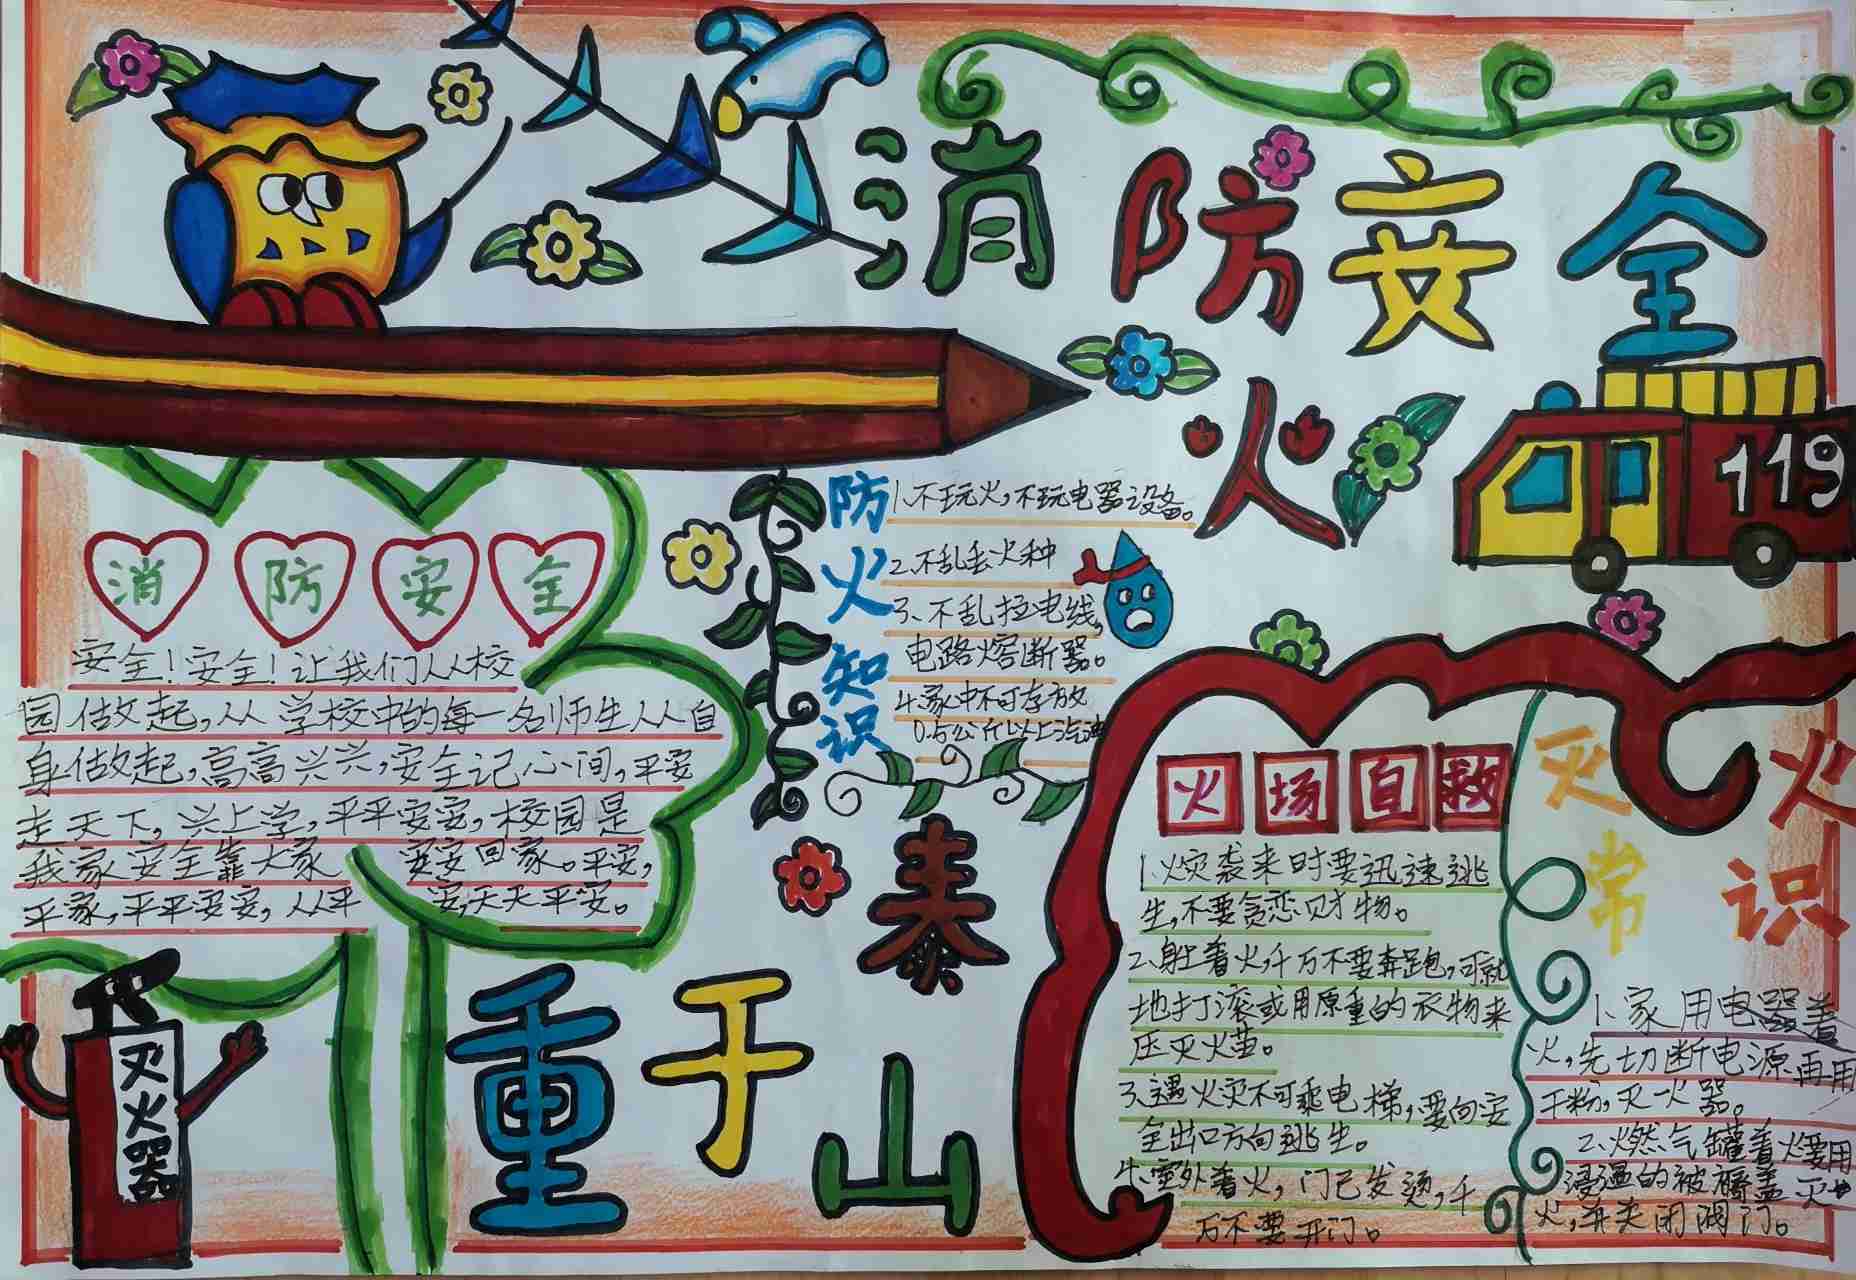 消防安全
重于泰山
火
119
消防安全
安全！安全！让我们从校
园做起，从学校中的每一名师生从自
身做起，高高兴兴，安全记心间，平安
走天下，兴上学，平平安安，校园是
我家安全靠大家 安安回家。平安，
平家，平平安安，从平 安，天天平安。
灭火器
防火知识
1、不玩火，不玩电器设备。
2、不乱丢火种
3、不乱拉电线，
电路熔断器。
4、家中不可存放
0.5公斤以上汽油
火场自救
1、火灾袭来时要迅速逃
生，不要贪恋财物。
2、身上着火，千万不要奔跑，可就
地打滚或用原重的衣物来
压灭火苗。
3、遇火灾不可乘电梯，要向安
全出口方向逃生。
4、室外着火，门已发烫，千
万不要开门。
灭火
常识
1、家用电器着
火，先切断电源再用
干粉，灭火器。
2、燃气罐着火要用
浸湿的被褥盖灭
火，并关闭阀门。